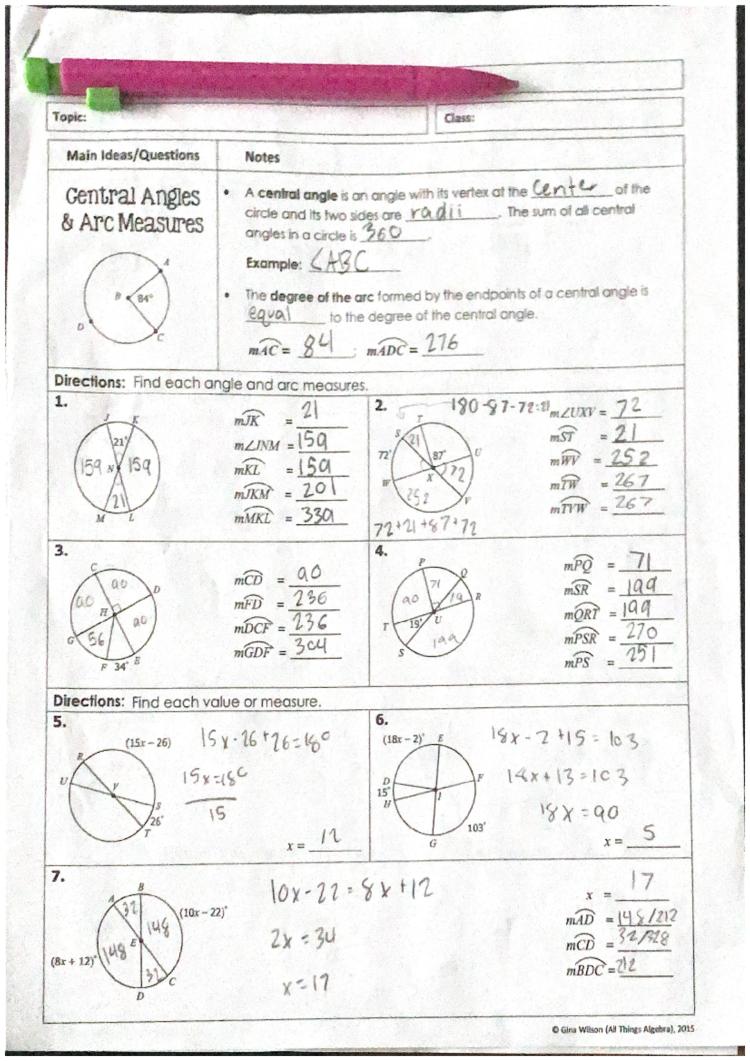 Topic:
Class:
Main Ideas/Questions
Notes
Central Angles
& Arc Measures
A
B 84°
D
C
• A central angle is an angle with its vertex at the center of the
circle and its two sides are radii. The sum of all central
angles in a circle is 360.
Example: <ABC
• The degree of the arc formed by the endpoints of a central angle is
equal to the degree of the central angle.
mAC = 84 ; mADC = 276
Directions: Find each angle and arc measures.
1.
J K
21°
159 N 159
21
M L
mJK = 21
m∠JNM = 159
mKL = 159
mJKM = 201
mMKL = 339
2.
180-87-72=21
T
S 21 87° U
72°
X 72
W
252 V
72+21+87+72
m∠UXV = 72
mST = 21
mWV = 252
mTW = 267
mTVW = 267
3.
C
90 D
90 H
90
G 56
F 34° E
mCD = 90
mFD = 236
mDCF = 236
mGDF = 304
4.
P Q
71
90 19 R
T 19° U
199
S
mPQ = 71
mSR = 199
mQRT = 199
mPSR = 270
mPS = 251
Directions: Find each value or measure.
5.
(15x – 26)
R
U V
S
26°
T
15x-26+26=180
15x=180
15
x = 12
6.
(18x – 2)° E
D F
15°
H I
103°
G
18x-2+15=103
18x+13=103
18x=90
x = 5
7.
B
A 32
(10x – 22)°
148
E
148
(8x + 12)°
32 C
D
10x-22=8x+12
2x=34
x=17
x = 17
mAD = 148/212
mCD = 32/328
mBDC = 212
© Gina Wilson (All Things Algebra), 2015